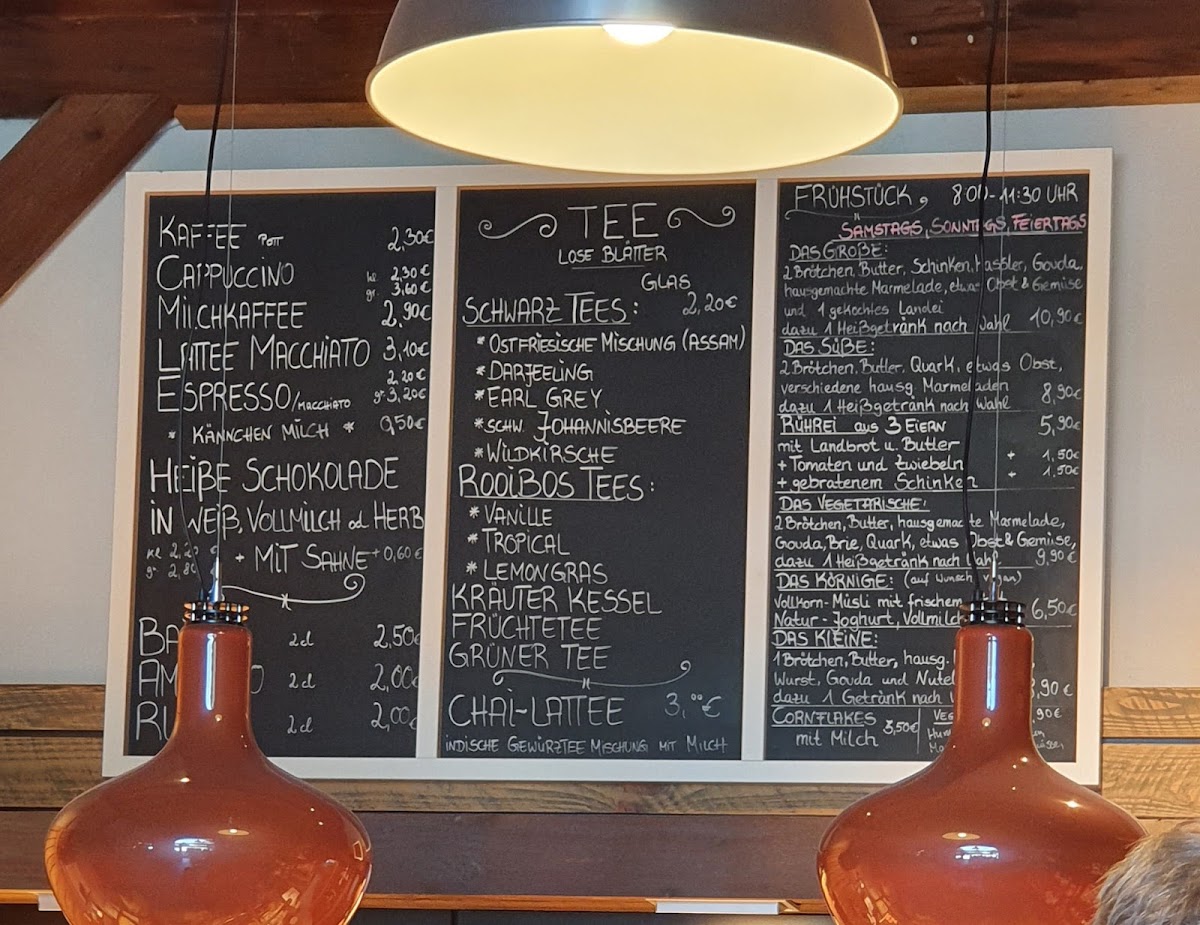 KAFFEE POTT 2,30€
CAPPUCCINO kl. 2,30€
gr. 3,60€
MILCHKAFFEE 2,90€
LATTEE MACCHIATO 3,10€
2,20€
ESPRESSO/MACCHIATO gr 3,20€
* KÄNNCHEN MILCH * 0,50€
HEIßE SCHOKOLADE
IN WEIß, VOLLMILCH od HERB
kl 2,20
gr 2,80
+ MIT SAHNE +0,60€
2cl 2,50€
2cl 2,00€
2cl 2,00€
TEE
LOSE BLÄTTER
GLAS
SCHWARZ TEES: 2,20€
* OSTFRIESISCHE MISCHUNG (ASSAM)
* DARJEELING
* EARL GREY
* SCHW. JOHANNISBEERE
* WILDKIRSCHE
ROOIBOS TEES:
* VANILLE
* TROPICAL
* LEMONGRAS
KRÄUTER KESSEL
FRÜCHTETEE
GRÜNER TEE
CHAI-LATTEE 3,00€
INDISCHE GEWÜRZTEE MISCHUNG MIT MILCH
FRÜHSTÜCK 8:00-11:30 UHR
SAMSTAGS, SONNTAGS, FEIERTAGS
DAS GROßE:
2 Brötchen, Butter, Schinken, Kassler, Gouda,
hausgemachte Marmelade, etwas Obst & Gemüse
und 1 gekochtes Landei
dazu 1 Heißgetränk nach Wahl 10,90€
DAS SÜßE:
2 Brötchen, Butter, Quark, etwas Obst,
verschiedene hausg. Marmeladen
dazu 1 Heißgetränk nach Wahl 8,90€
RÜHREI aus 3 EIERN 5,90€
mit Landbrot u. Butter
+ Tomaten und Zwiebeln + 1,50€
+ gebratenem Schinken + 1,50€
DAS VEGETARISCHE:
2 Brötchen, Butter, hausgemachte Marmelade,
Gouda, Brie, Quark, etwas Obst & Gemüse,
dazu 1 Heißgetränk nach Wahl 9,90€
DAS KÖRNIGE: (auf Wunsch vegan)
Vollkorn-Müsli mit frischem
Natur-Joghurt, Vollmilch 6,50€
DAS KLEINE:
1 Brötchen, Butter, hausg.
Wurst, Gouda und
dazu 1 Getränk nach ,90€
CORNFLAKES 3,50€
mit Milch
,90€